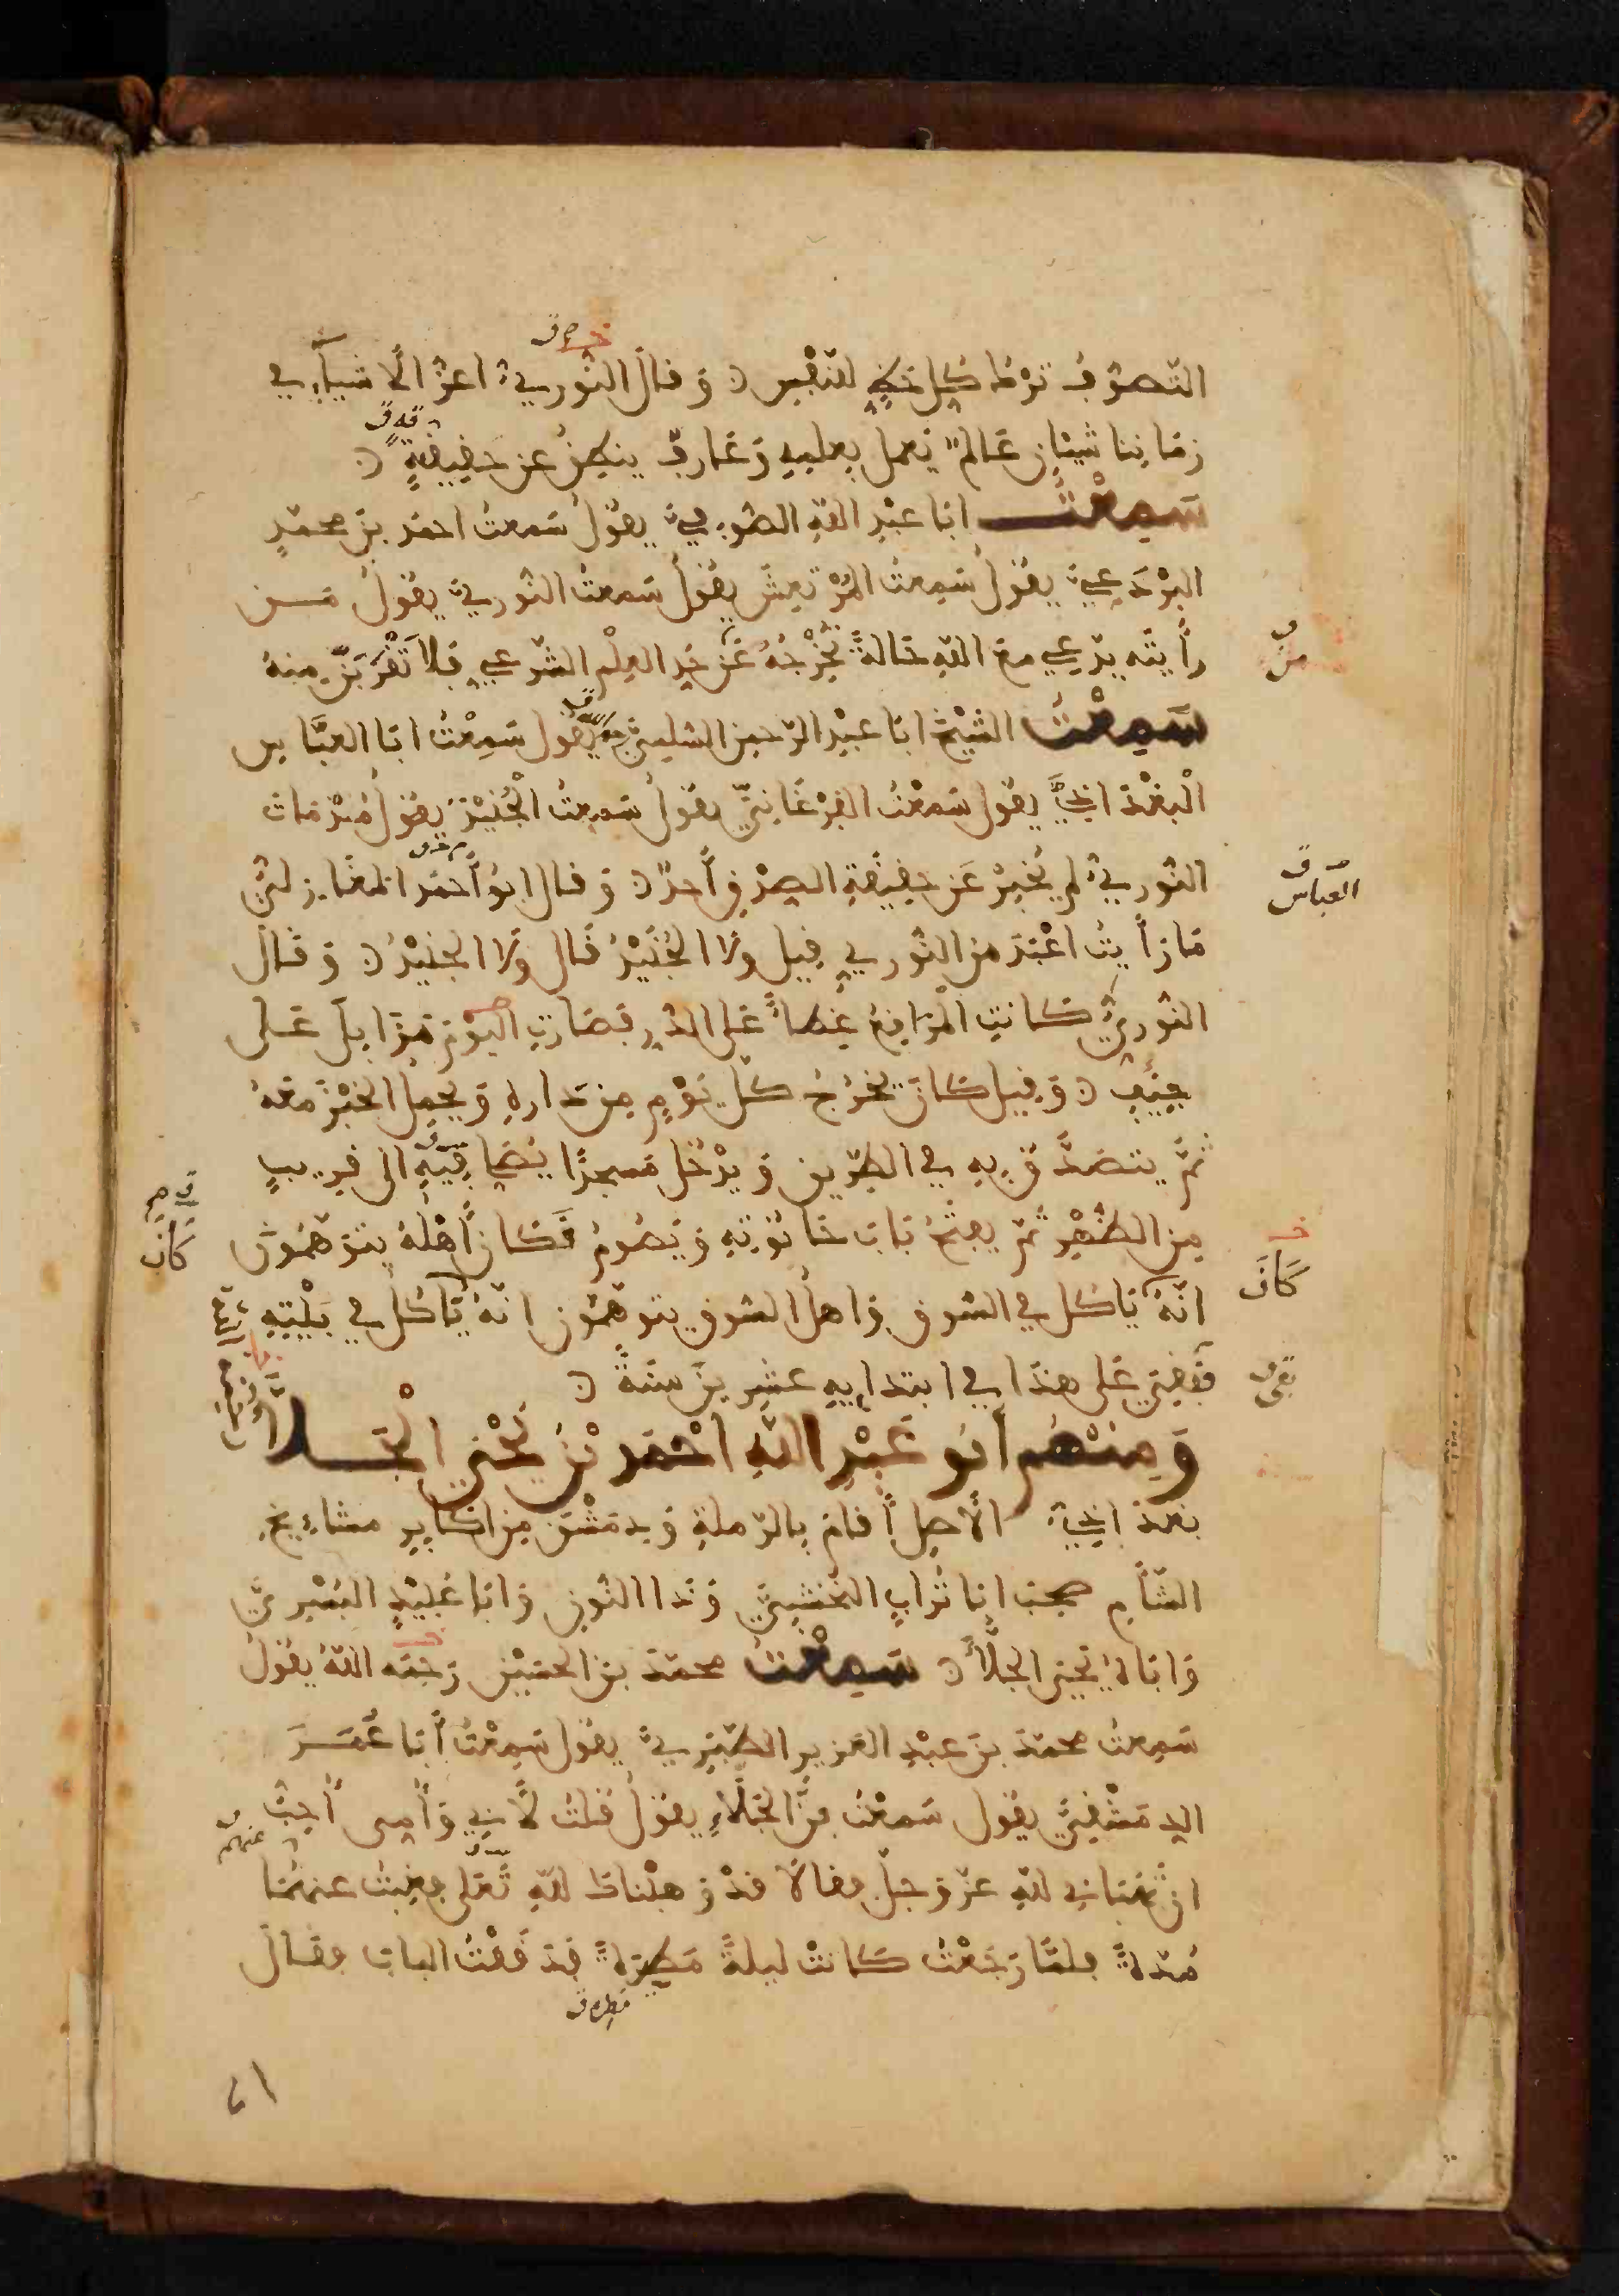 التصوّف ترك كل حظ للنفس وقال النّوريّ اعزّ الأشيآء في
زماننا شيئان عالم يعمل بعلمه وعارف ينطق عن حقيقةٍ
سَمِعْتُ ابا عبد الله الصّوفيّ يقول سَمعتُ احمد بن محمّدٍ
البَرْدَعيّ يقول سَمِعتُ المُرْتعِش يقول سَمعتُ النّوريّ يقول مَن
رأيته يدّعي مع الله حالةً تُخْرِجُهُ عَن حَدِ العِلْم الشّرعي فلا تَقْرَبَنّ منهُ
من
سَمِعْتُ الشّيْخ ابا عبْدِ الرّحمن السّلميّ يقول سَمِعْتُ ابا العبّاس
الْبغْدَاديَّ يقول سَمعْتُ الفَرْغَانيّ يقولُ سَمِعتُ الجُنَيْدَ يقول مُنذ مات
النّوريّ لم يُخبِرْ عَن حقيقةِ الصِدْقِ أحدٌ وقال ابو أحمد المغازلي
العباس
ما رأيتُ اعْبَدَ من النّوري قيل ولا الجُنَيْدُ قال ولا الجُنَيْدُ وقال
النّوريّ كانتِ المَرَاقِعُ غِطاءً على الدُّرِ فصارتِ اليَوْمَ مَزَابل على
جِيَفٍ وقيل كان يخرُجُ كلّ يَوْمٍ من دارهِ ويحمِل الخبْزَ معهُ
ثمّ يتصَدّق به في الطّريق ويدْخُل مَسجدًا يُصَلي فيهِ الى قريبٍ
من الظّهْرِ ثمّ يفتَحُ باب حَانُوتِهِ ويَصُومُ فَكَان أهْلهُ يتوَهّمُونَ
كان
كَانَ
انّهُ يَاكل في السّوق واهلُ السّوق يتوهّمُون انّهُ يَاكلُ في بَيْتِهِ
فَبَقي على هذا في ابتدايه عشرين سَنَةً
بقى
وَمِنْهُم أَبُو عَبْدِ اللهِ احْمَد بْنُ يَحْيَى الْجَلَّا
بَغْدَاديّ الأصل أقام بالرّملةِ وبدِمَشْق من اكابِر مشايخ
الشّأم صحب ابا تُرابٍ النّخشَبيّ وذا النّون وابا عُبَيْدٍ البُسْريّ
واباهُ يَحيى الجلّاء سَمِعْتُ محمّد بن الحُسَيْن رَحِمَه اللهُ يقول
سَمِعتُ محمّد بن عبْدِ العَزيز الطّبَريّ يقول سَمِعْتُ أبَا عُمَرَ
الدِمَشْقيّ يقول سَمعْتُ بنَ الجَلّاءِ يقولُ قلتُ لأبي وأمي أُحِبُّ
ان تهَبَاني للهِ عزّ وجلّ فقالا قدْ وهبْناكَ للهِ تَعَلى فغِبتُ عنهُمَا
عنهم
مُدّةً فلمّا رَجَعْتُ كانتْ ليلةً مَطِيرَةً فدققْتُ الباب فقال
مَطِرة ق